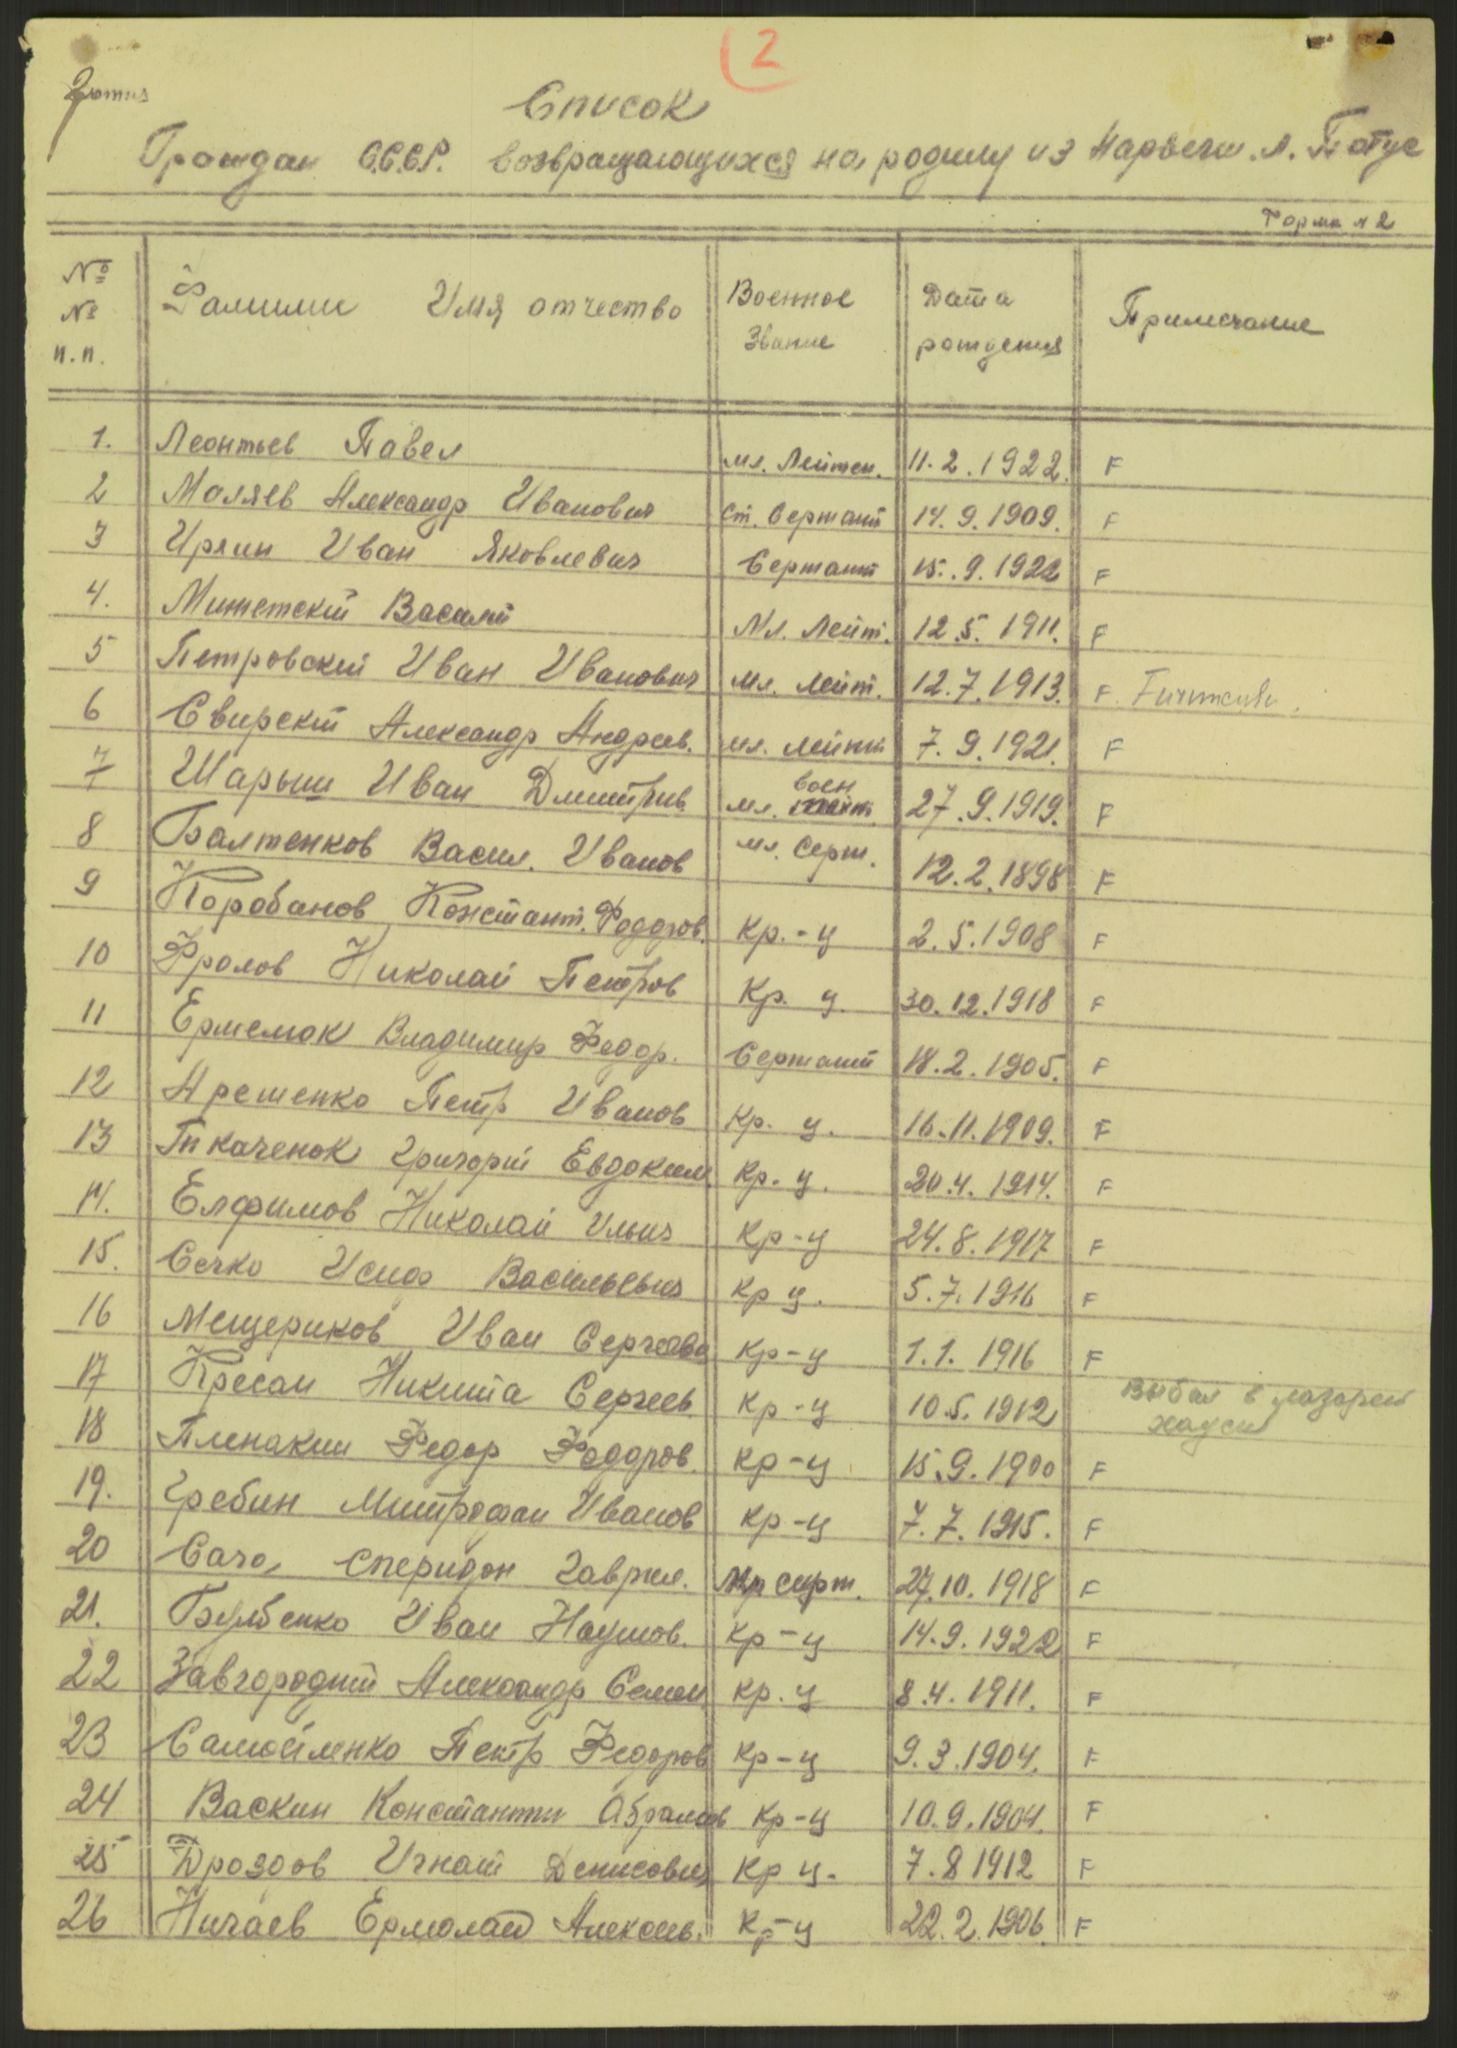 2
Список
Граждан С.С.С.Р. возвращающихся на родину из Норвегии. л.
Форма № 2
№ № п.п. Фамилии Имя отчество Военное звание Дата рождения Примечание
1. Леонтьев Павел мл. Лейтен. 11.2.1922. F
2 Моляев Александр Иванович ст. Сержант 14.9.1909. F
3 Ирлин Иван Яковлевич Сержант 15.9.1922 F
4. Василий Мл. Лейт. 12.5.1911. F
5 Петровский Иван Иванович мл. лейт. 12.7.1913. F.
6 Свирский Александр Андреев. мл. лейтн 7.9.1921. F
7 Шарыш Иван Дмитрив. мл. воен 27.9.1919. F
8 Балтенков Васил. Иванов мл. Серж. 12.2.1898 F
9 Коробанов Констант. Федоров. Кр.-ц 2.5.1908 F
10 Фролов Николай Петров Кр. ц. 30.12.1918 F
11 Ермелюк Владимир Федор. Сержант 18.2.1905. F
12 Арешенко Петр Иванов Кр. ц. 16.11.1909. F
13 Ткаченок Григорий Евдоким. Кр. ц. 20.4.1914. F
14. Елфимов Николай Ильич Кр-ц 24.8.1917 F
15. Сечко Исиф Васильевич Кр ц. 5.7.1916 F
16 Мещериков Иван Кр-ц 1.1.1916 F
17 Кресан Никита Сергеев. Кр-ц 10.5.1912 Выбал в лазарет
18 Пленакин Федор Федоров. Кр-ц 15.9.1900 F
19. Гребин Митрофан Иванов Кр-ц 7.7.1915. F
20 Сачо, Сперидон Гаврил. серж. 27.10.1918 F
21. Булбенко Иван Наумов. Кр-ц 14.9.1922 F
22 Завгородний Александр Семен. Кр.ц 8.4.1911. F
23 Самойленко Петр Федоров Кр-ц 9.3.1904. F
24 Васкин Константин Абрамов Кр-ц 10.9.1904. F
25 Дроздов Игнат Денисович Кр ц. 7.8 1912 F
26 Ничаев Ермолай Алексеев. Кр-ц 22.2.1906. F